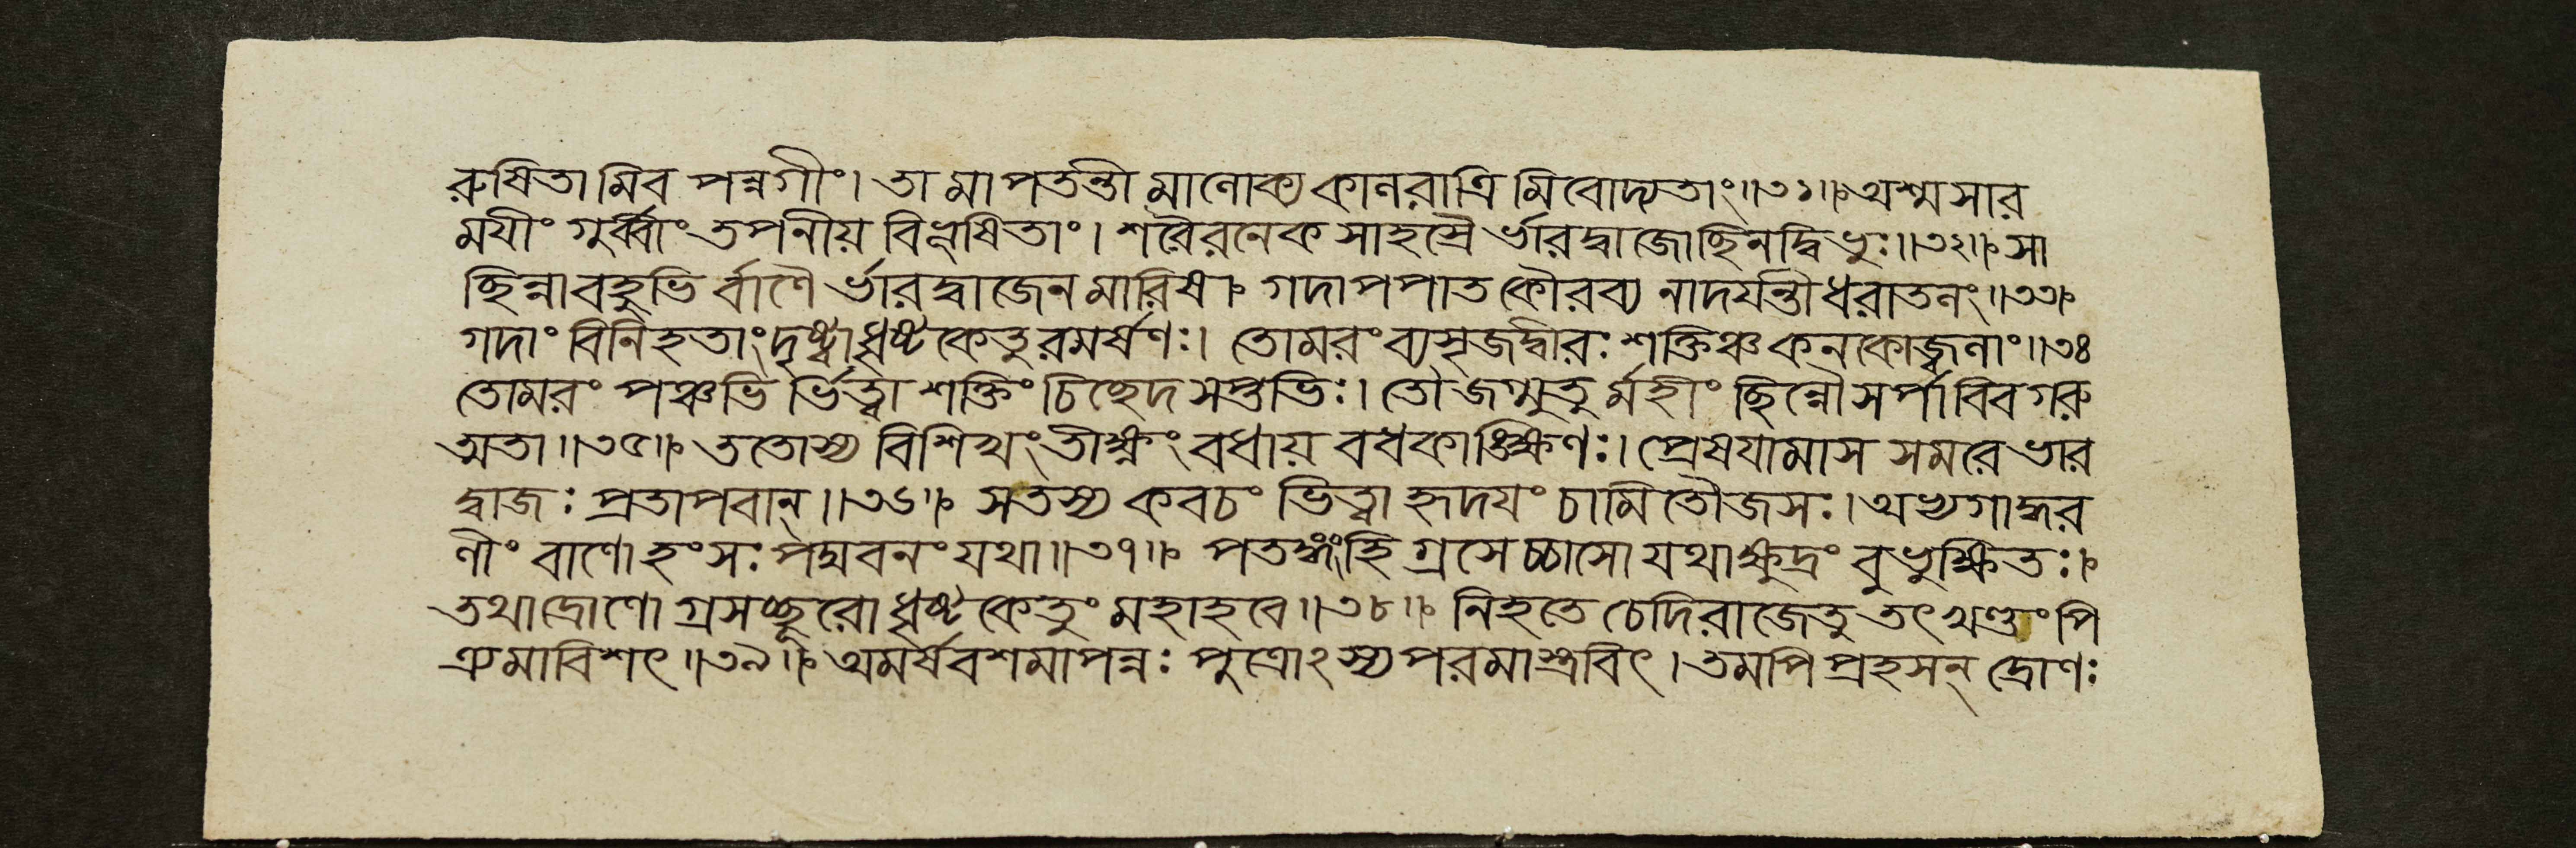 রুষিতামিব পন্নগীং। তামাপতন্তীমালোক্য কালরাত্রিমিবোদ্যতাং॥৩১॥ অশ্মসার
ময়ীং গুর্ব্বীং তপনীয় বিভূষিতাং। শরৈরনেক সাহস্রৈ র্ভারদ্বাজোচ্ছিনদ্বিভুঃ॥৩২॥ সা
ছিন্না বহুভি র্বাণৈ র্ভারদ্বাজেন মারিষ। গদা পপাত কৌরব্য নাদয়ন্তী ধরাতলং॥৩৩
গদাং বিনিহতাং দৃষ্ট্বা ধৃষ্টকেতুরমর্ষণঃ। তোমরং ব্যসৃজদ্বীরঃ শক্তিঞ্চ কনকোজ্জ্বলাং॥৩৪
তোমরং পঞ্চভি র্ভিত্ত্বা শক্তিং চিচ্ছেদ সপ্তভিঃ। তৌ জগ্মতু র্মহীং ছিন্নৌ সর্পাবিব গরু
ত্মতা॥৩৫॥ ততোস্য বিশিখং তীক্ষ্ণং বধায় বধকাঙ্ক্ষিণঃ। প্রেষয়ামাস সমরে ভার
দ্বাজঃ প্রতাপবান্॥৩৬॥ স তস্য কবচং ভিত্ত্বা হৃদয়ং চামিতৌজসঃ। অভ্যগাদ্ধর
ণীং বাণো হংসঃ পদ্মবনং যথা॥৩৭॥ পতঙ্গং হি গ্রসেচ্চাসো যথা ক্ষুদ্রং বুভুক্ষিতঃ।
তথা দ্রোণো গ্রসচ্ছূরো ধৃষ্টকেতুং মহাহবে॥৩৮॥ নিহতে চেদিরাজে তু তৎ খণ্ডং পি
ত্র্যমাবিশৎ॥৩৯॥ অমর্ষবশমাপন্নঃ পুত্রোঽস্য পরমাস্ত্রবিৎ। তমপি প্রহসন্ দ্রোণঃ